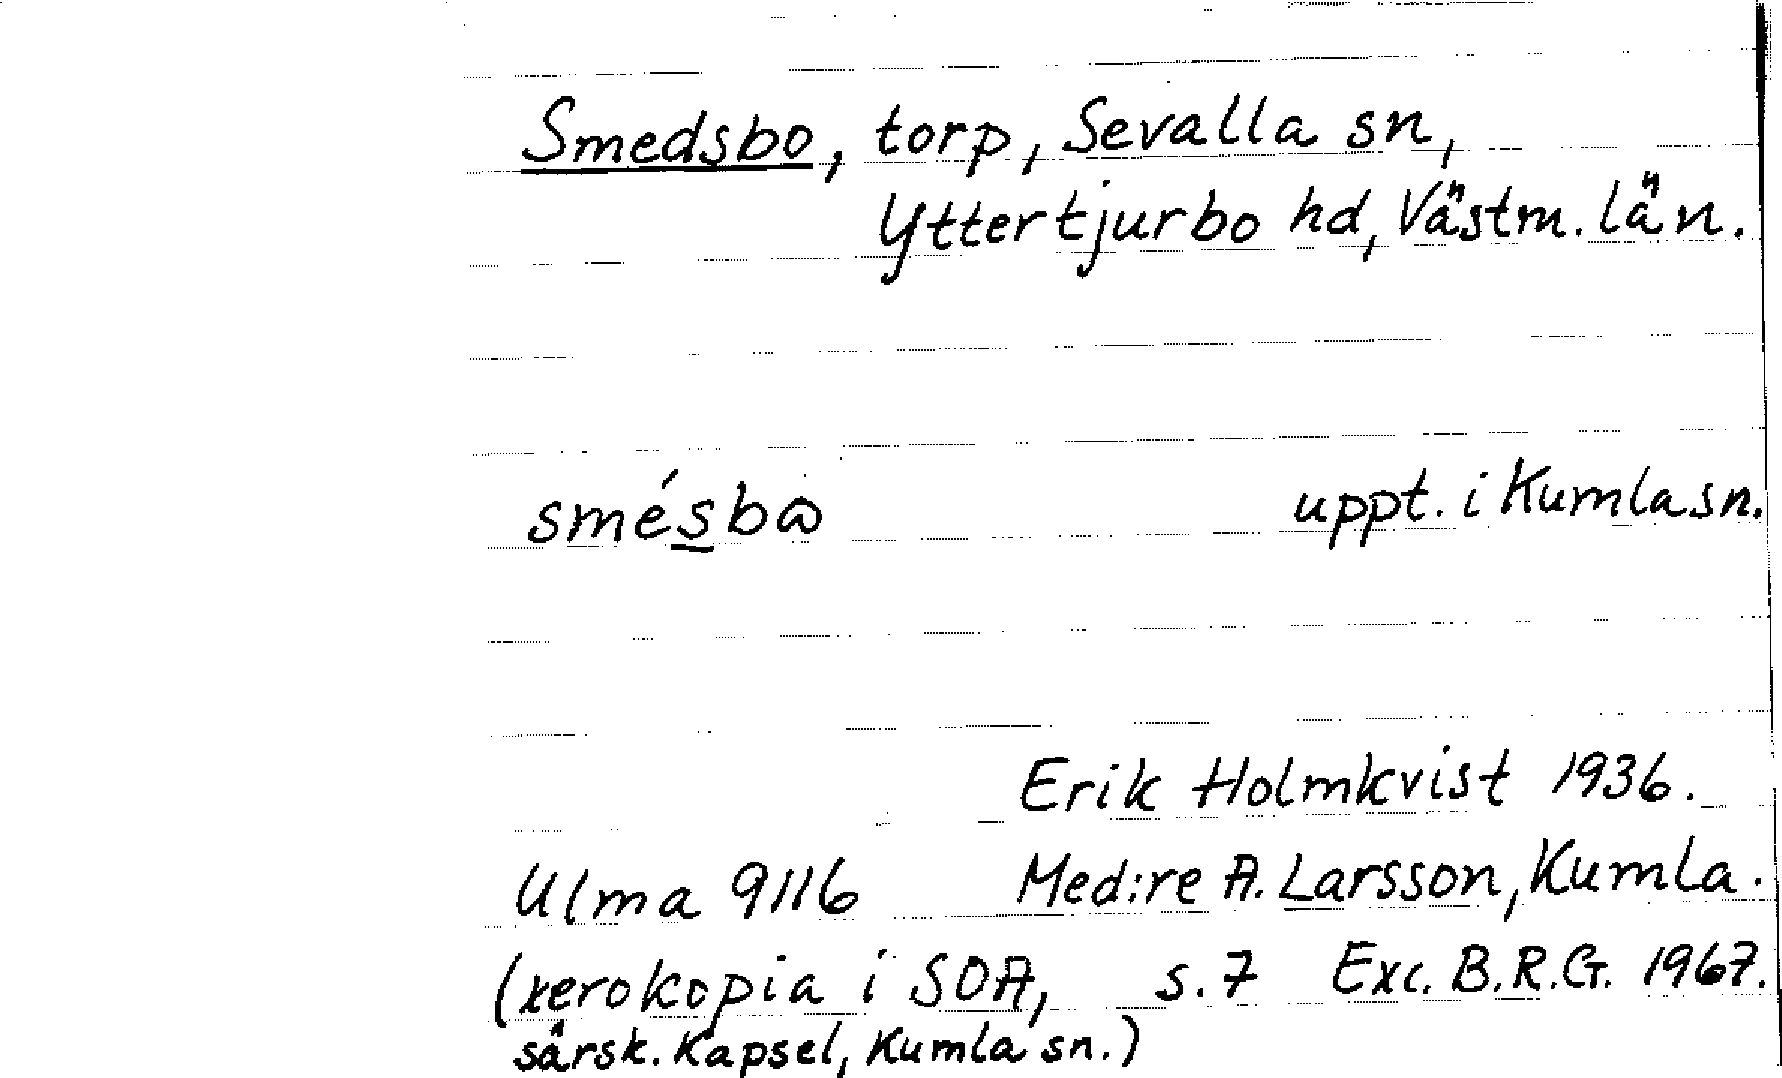 Smedsbo, torp, Sevalla sn,
Yttertjurbo hd, Västm. län.
smésbɷ uppt. i Kumla sn.
Erik Holmkvist 1936.
Ulma 9116 Med:re A. Larsson, Kumla.
(xerokopia i SOA, s. 7 Exc. B.R.G. 1967.
särsk. Kapsel, Kumla sn.)